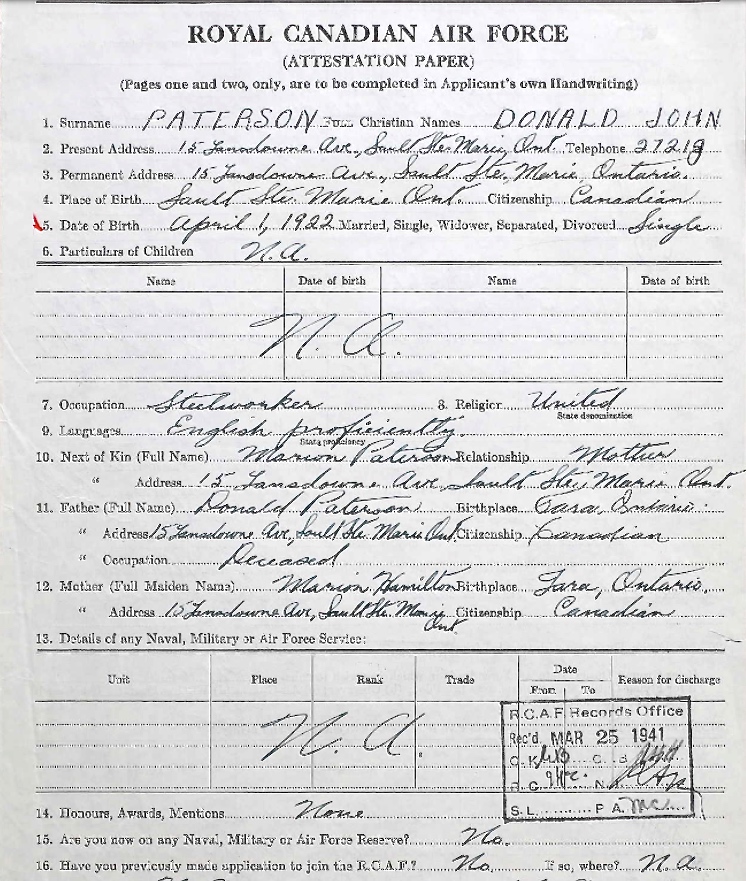 ROYAL CANADIAN AIR FORCE
(ATTESTATION PAPER)
(Pages one and two, only, are to be completed in Applicant's own Handwriting)
1. Surname PATERSON Full Christian Names DONALD JOHN
2. Present Address 15 Lansdowne Ave., Sault Ste. Marie, Ont. Telephone
3. Permanent Address 15 Lansdowne Ave., Sault Ste. Marie, Ontario.
4. Place of Birth Sault Ste. Marie Ont. Citizenship Canadian
5. Date of Birth April 1, 1922 Married, Single, Widower, Separated, Divorced Single
6. Particulars of Children N.A.
Name Date of birth Name Date of birth
N. A.
7. Occupation Steelworker 8. Religion United
State denomination
9. Languages English proficiently.
State proficiency
10. Next of Kin (Full Name) Marion Paterson Relationship Mother
" Address 15 Lansdowne Ave, Sault Ste. Marie Ont.
11. Father (Full Name) Donald Paterson Birthplace Tara, Ontario.
" Address 15 Lansdowne Ave, Sault Ste. Marie Ont Citizenship Canadian
" Occupation Deceased
12. Mother (Full Maiden Name) Marion Hamilton Birthplace Tara, Ontario.
" Address 15 Lansdowne Ave, Sault Ste. Marie Ont. Citizenship Canadian
13. Details of any Naval, Military or Air Force Service:
Unit Place Rank Trade Date From To Reason for discharge
N. A.
R.C.A.F. Records Office
Rec'd. MAR 25 1941
S.L. P.A.
14. Honours, Awards, Mentions None
15. Are you now on any Naval, Military or Air Force Reserve? No.
16. Have you previously made application to join the R.C.A.F.? No. If so, where? N.A.